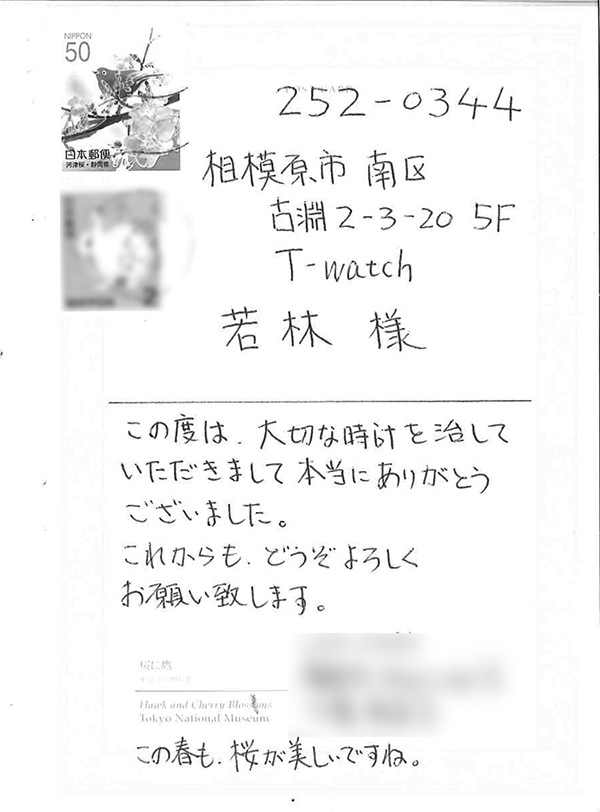 NIPPON
50
日本郵便
河津桜・静岡県
252-0344
相模原市 南区
古淵2-3-20 5F
T-watch
若林 様
この度は、大切な時計を治して
いただきまして本当にありがとう
ございました。
これからも、どうぞよろしく
お願い致します。
桜に鷹
Hawk and Cherry Blossoms
Tokyo National Museum
この春も、桜が美しいですね。